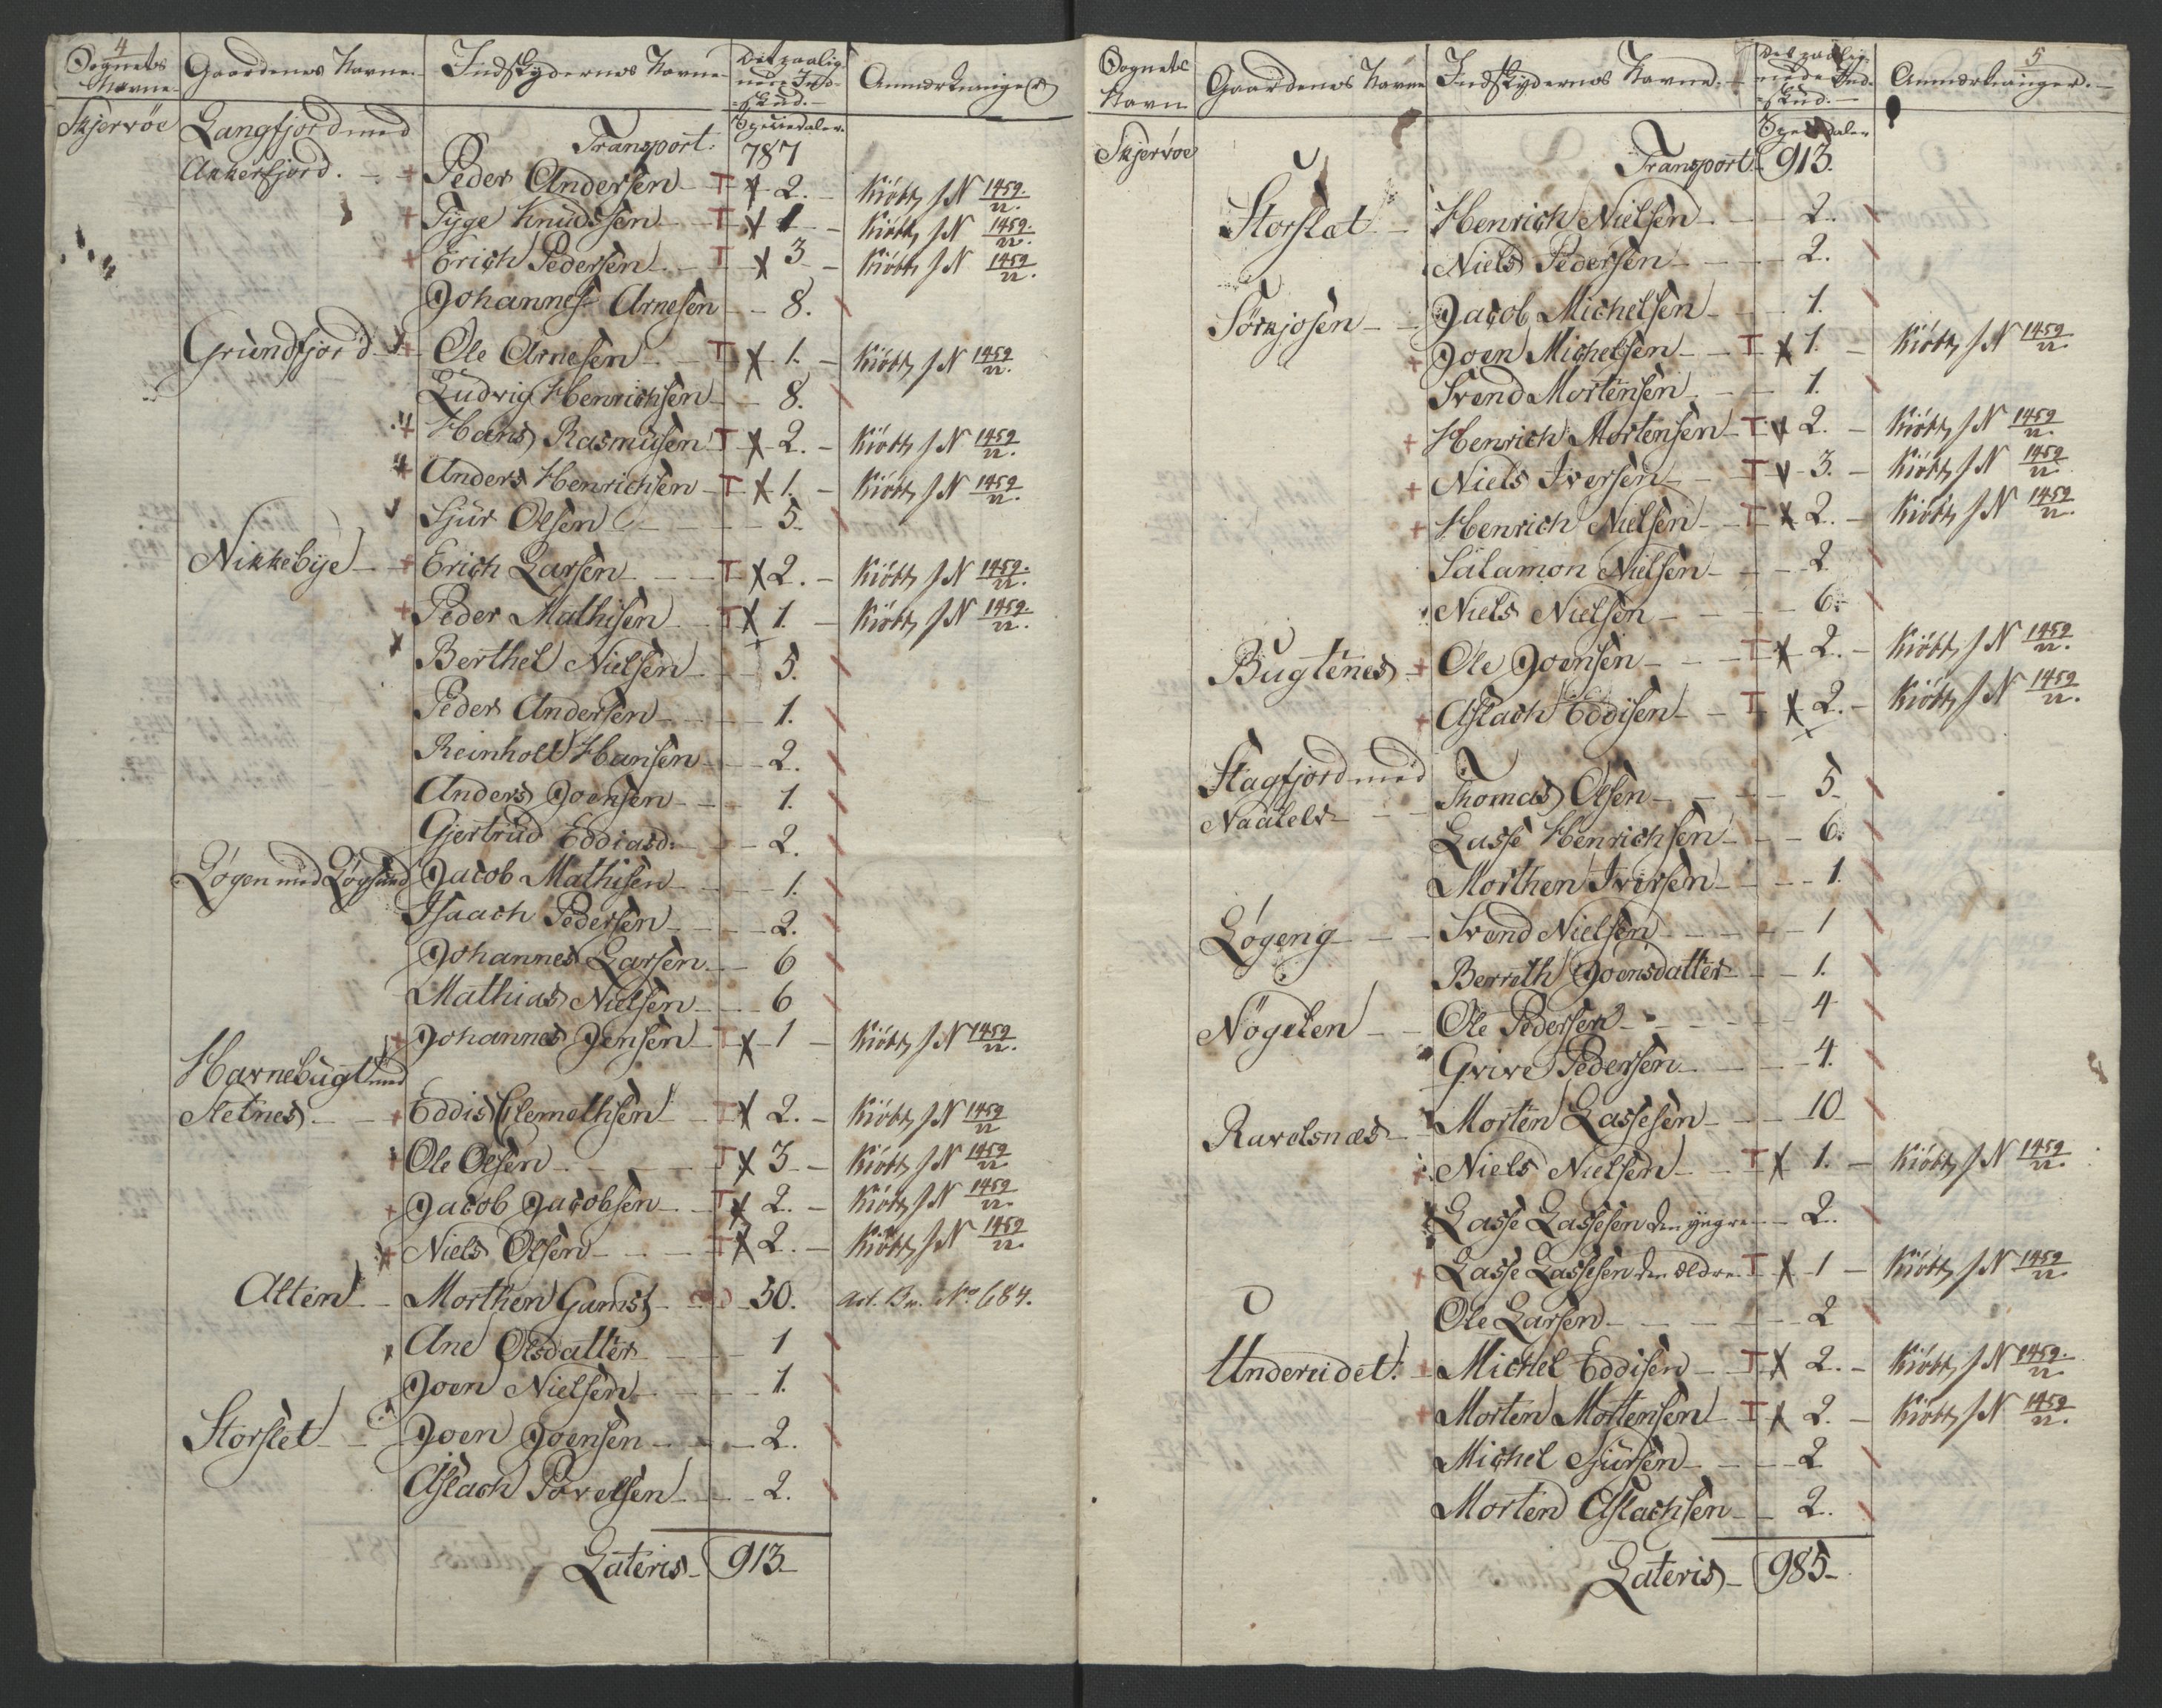 4
Sognets Navne Gaardenes Navne Indskydernes Navne Det paalignede Indskud. Anmærkninger
Speciedaler.
Skjervöe Langfjord med Transport: 787
Akkerfjord. + Peder Andersen T X 2. Kiöbt JN 1459/22.
+ Tyge Knudssen T X 1 Kiöbt JN 1459/22.
+ Erich Pedersen T X 3 Kiöbt JN 1459/22.
Johannes Arnesen 8.
Grundfjord + Ole Arnesen T X 1. Kiöbt JN 1459/22.
Ludvig Henrichsen 8.
+ Hans Rasmusen T X 2. Kiöbt JN 1459/22.
+ Anders Henrichsen T X 1. Kiöbt JN 1459/22.
Sjur Olsen 5.
Nikkebÿe + Erich Larsen T X 2. Kiöbt JN 1459/22.
+ Peder Mathisen T X 1. Kiöbt JN 1459/22.
Berthel Nielsen 5.
Peder Andersen 1.
Reinholt Hansen 2.
Anders Joensen 1.
Gjertrud Eddiasd: 2.
Løgen med Løgsund Jacob Mathisen 1.
Isaach Pedersen 2.
Johannes Larsen 6
Mathias Nielsen 6
+ Johannes Jensen T X 1 Kiöbt JN 1459/22.
Havnebugt med
Sletnes + Eddis Clemethsen T X 2. Kiöbt JN 1459/22
+ Ole Olsen T X 3 Kiöbt JN 1459/22
+ Jacob Jacobsen T X 2. Kiöbt JN 1459/22.
+ Niels Olsen T X 2. Kiöbt JN 1459/22.
Alten Morthen Gamst 50. Act. Br. No 684.
Ane Olsdatter 1
Joen Nielsen 1.
Storslet Joen Joensen 2.
Aslach Povelsen 2.
Lateris 913
5
Sognets Navn Gaardenes Navne Indskydernes Navne. Det paalignede Indskud. Anmærkninger.
Speciedaler
Skjervöe Transport 913.
Storslat Henrich Nielsen 2.
Niels Pedersen 2.
Sörkjosen Jacob Michelsen 1.
+ Joen Michelsen T X 1. Kiöbt JN 1459/22.
Svend Mortensen 1.
+ Henrich Mortensen T X 2. Kiöbt JN 1459/22.
+ Niels Iversen T X 3. Kiöbt JN 1459/22.
+ Henrich Nielsen T X 2. Kiöbt JN 1459/22.
Salamon Nielsen 2
Niels Nielsen 6.
Bugtenes + Ole Joensen T X 2. Kiöbt JN 1459/22.
+ Aslach Eddisen T X 2. Kiöbt JN 1459/22.
Stagfjord med Thomas Olsen 5
Naaielv Lasse Henrichsen 6.
Morthen Iversen 1.
Løgeng Svend Nielsen 1
Berreth Joensdatter 1.
Nögelen Ole Pedersen 4
Grive Pedersen 4.
Ravelsnæs Morten Lassesen 10
+ Niels Nielsen T X 1. Kiöbt JN 1459/22.
Lasse Lassesen den yngre 2.
+ Lasse Lassesen den ældre T X 1 Kiöbt JN 1459/22
Ole Larsen 2
Undereidet. + Michel Eddisen T X 2. Kiöbt JN 1459/22.
+ Morten Mortensen T X 2. Kiöbt JN 1459/22.
Michel Sjursen 2
Morten Aslachsen 2.
Lateris 985